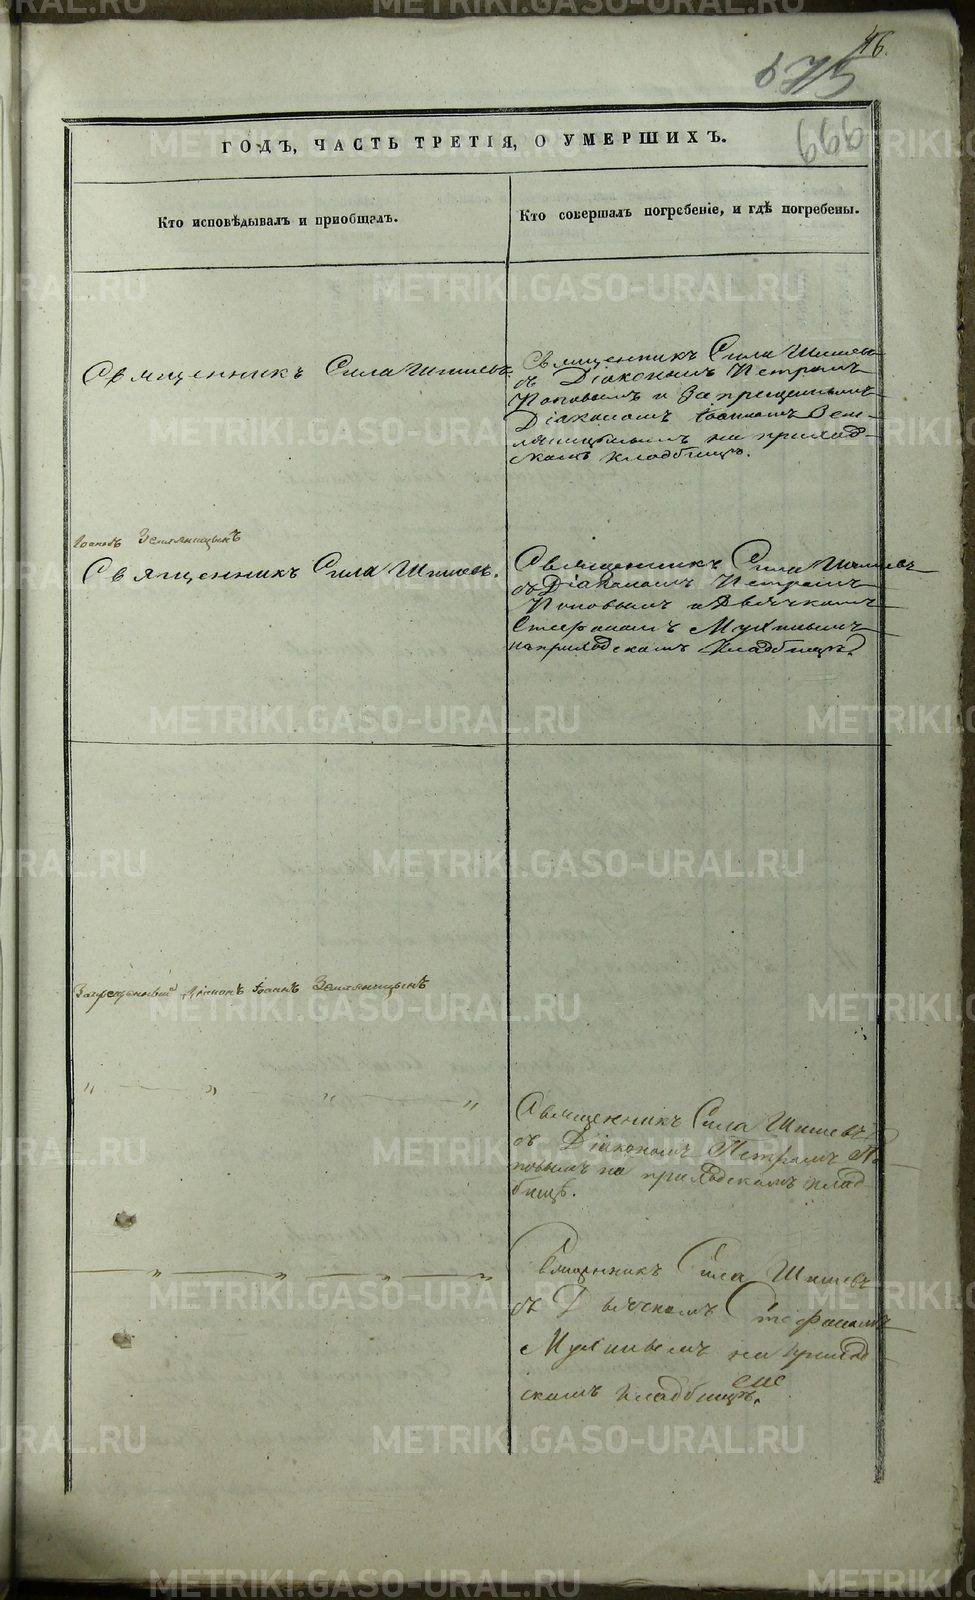 46.
675
666
ГОДЪ, ЧАСТЬ ТРЕТІЯ, О УМЕРШИХЪ.
Кто исповѣдывалъ и приобщалъ.
Кто совершалъ погребеніе, и гдѣ погребены.
Священникъ Сила Шишевъ.
Священникъ Сила Шишевъ
съ Діакономъ Петромъ
Поповымъ и Запрещеннымъ
Діакономъ Іоанномъ Зем-
ляницынымъ на приход-
скомъ кладбищѣ.
Іоаннъ Земляницынъ
Священникъ Сила Шишевъ.
Священникъ Сила Шишевъ
съ Діакономъ Петромъ
Поповымъ и Дьячкомъ
Стефаномъ Мухинымъ
на приходскомъ кладбищѣ.
Запрещенный Діаконъ Іоаннъ Земляницынъ
" " " "
Священникъ Сила Шишевъ
съ Діакономъ Петромъ По-
повымъ на приходскомъ клад-
бищѣ.
" " " "
Священникъ Сила Шишевъ
съ Дьячкомъ Стефаномъ
Мухинымъ на приход-
скомъ кладбищѣ.
METRIKI.GASO-URAL.RU